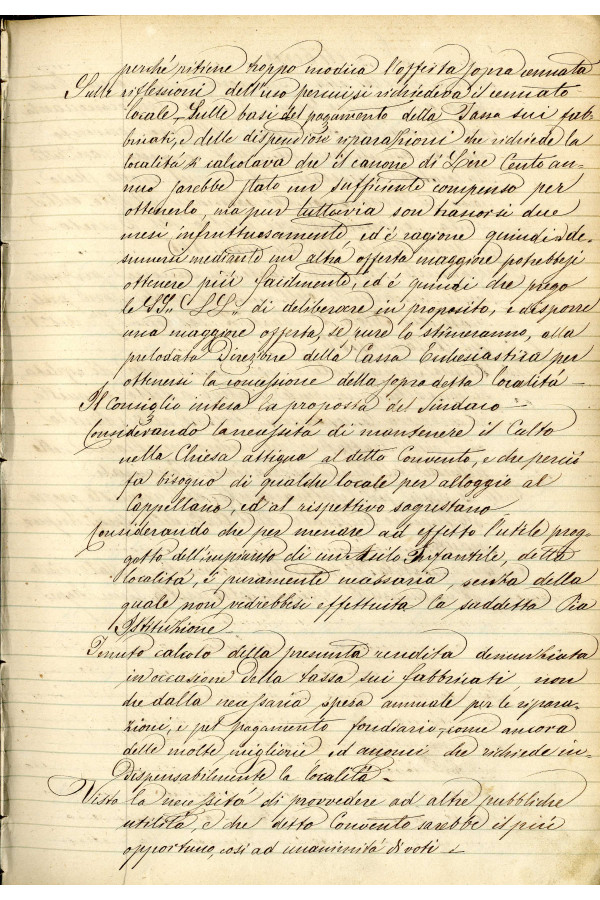 perché ritiene troppo modica l'offerta sopra cennata
Sulle riflessioni dell'uso percui si richiedeva il cennato
locale, Sulle basi del pagamento della Tassa sui fab-
bricati, e delle dispendiose riparazioni che richiede la
località si calcolava che il canone di Lire Cento an-
nuo sarebbe stato un sufficiente compenso per
ottenerlo, ma pur tuttavia son trascorsi due
mesi infruttuosamente, ed è ragione quindi a de-
sumersi mediante un altra offerta maggiore potrebbesi
ottenere più facilmente, ed è quindi che prego
le SS.. LL.. di deliberare in proposito, e disporre
una maggiore offerta, se pure lo stimeranno, alla
prelodata Direzione della Cassa Ecclesiastica per
ottenersi la concessione della sopra detta località –
Il Consiglio intesa la proposta del Sindaco –
Considerando la necessità di mantenere il Culto
nella Chiesa attigua al detto Convento, e che perciò
fa bisogno di qualche locale per alloggio al
Cappellano, ed al rispettivo sagrestano
Considerando che per menare ad effetto l'utile prog-
getto dell'impianto di un Asilo Infantile, detta
località, è puramente necessaria, senza della
quale non vedrebbesi effettuita la suddetta Pia
Istituzione –
Tenuto calcolo della presunta rendita denunziata
in occasione della tassa sui fabbricati non
che dalla necessaria spesa annuale per le ripara-
zioni, e pel pagamento fondiario, come ancora
delle molte migliorie ed anonci che richiede in-
dispensabilmente la località –
Visto la necessità di provvedere ad altre pubbliche
utilità, e che detto Convento sarebbe il più
opportuno, così ad unanimità di voti –